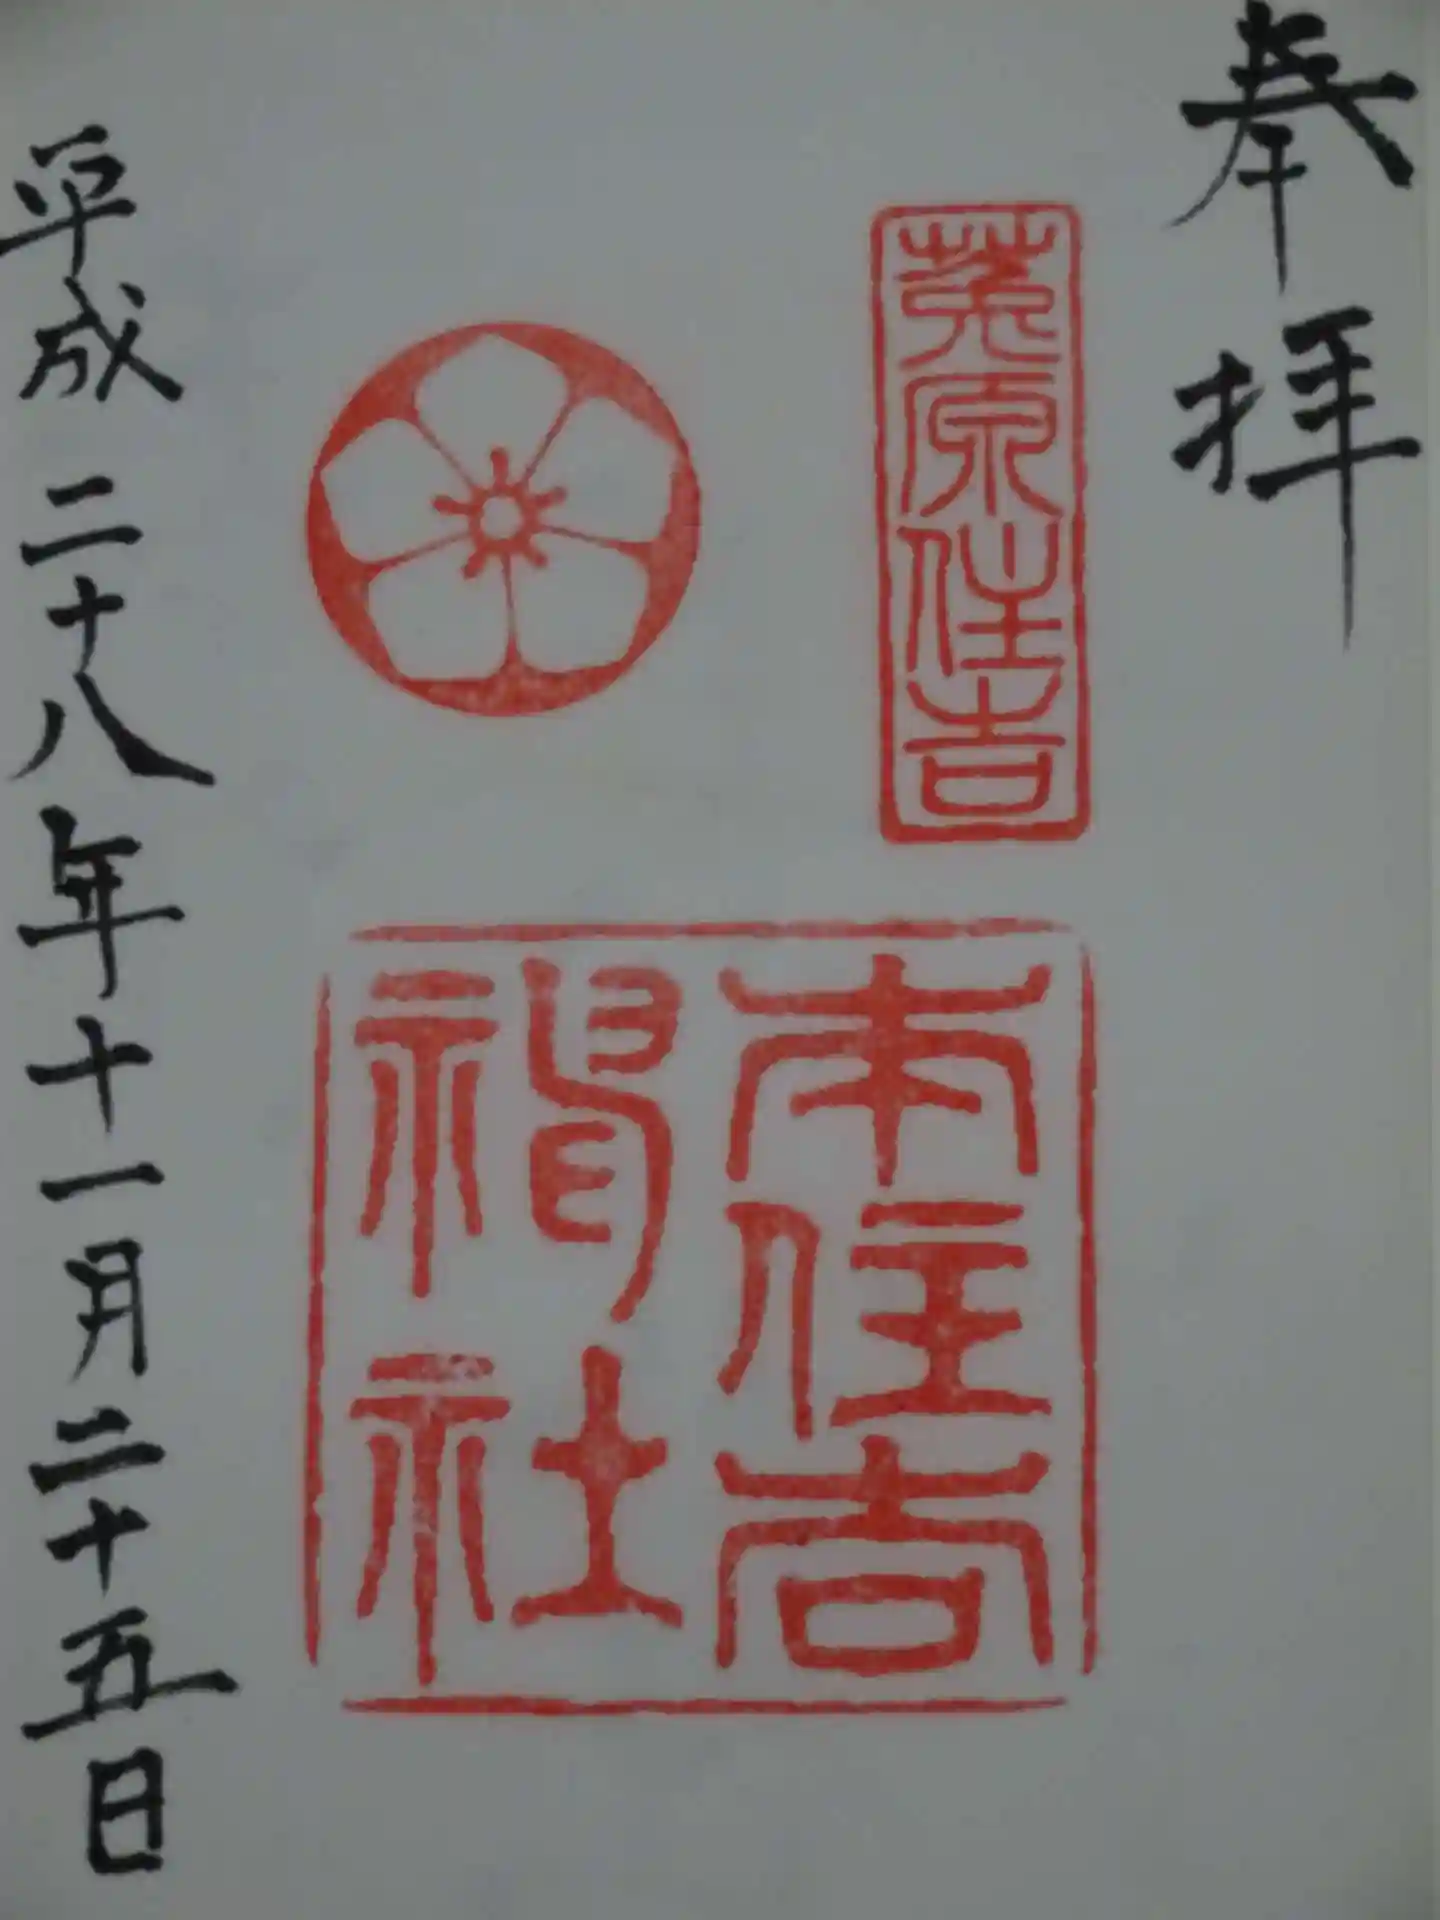 奉拝
菟原住吉
本住吉
神社
平成二十八年十一月二十五日